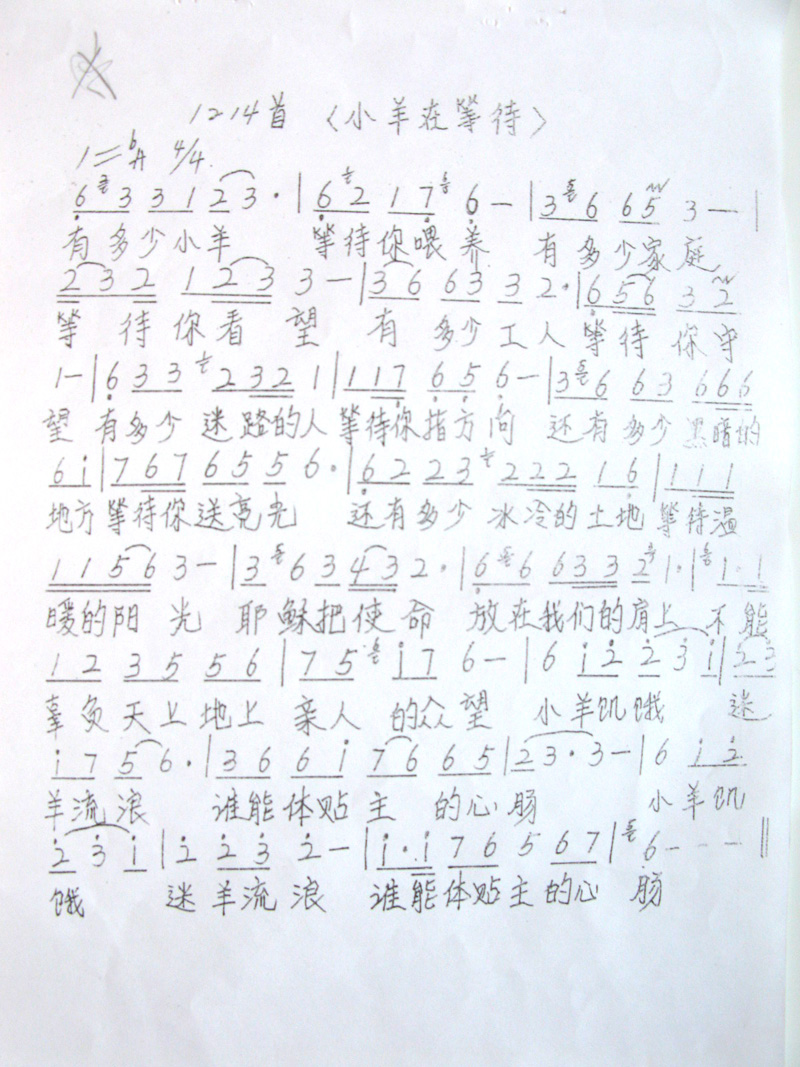 1214首 〈小羊在等待〉
1=ᵇA 4/4
6 3 3 1 2 3 · | 6 2 1 7 6 — | 3 6 6 5 3 — |
有多少小羊 等待你喂养 有多少家庭
2 3 2 1 2 3 3 — | 3 6 6 3 3 2 · | 6 5 6 3 2
等待你看望 有多少工人等待你守
1 — | 6 3 3 2 3 2 1 | 1 1 7 6 5 6 — | 3 6 6 3 6 6 6
望 有多少迷路的人等待你指方向 还有多少黑暗的
6 i | 7 6 7 6 5 5 6 · | 6 2 2 2 3 2 2 2 1 6 | 1 1 1
地方等待你送亮光 还有多少冰冷的土地 等待温
1 1 5 6 3 — | 3 6 3 4 3 2 · | 6 6 6 3 3 2 1 · | 1 · 1
暖的阳光 耶稣把使命 放在我们的肩上 不能
1 2 3 5 5 6 | 7 5 i 7 6 — | 6 i 2̇ 2̇ 3̇ i | 2̇ 3̇
辜负天上地上 亲人的众望 小羊饥饿 迷
i 7 5 6 · | 3 6 6 i 7 6 6 5 | 2 3 · 3 — | 6 i 2̇
羊流浪 谁能体贴主的心肠 小羊饥
2̇ 3̇ i | 2̇ 2̇ 3̇ 2̇ — | i · i 7 6 5 6 7 | 6 — — — ‖
饿 迷羊流浪 谁能体贴主的心肠